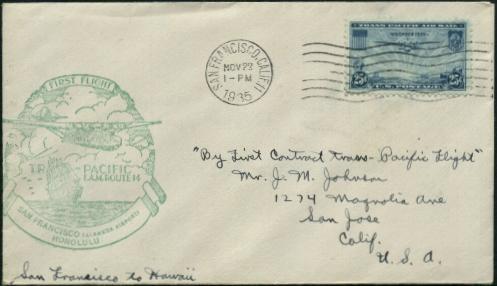 SAN FRANCISCO, CALIF. 11
NOV 22
1-PM
1935
TRANS-PACIFIC AIR MAIL
NOVEMBER 1935
25¢ 25¢
U.S. POSTAGE
FIRST FLIGHT
TRANS PACIFIC
F.A.M. ROUTE 14
SAN FRANCISCO (ALAMEDA AIRPORT)
HONOLULU
"By First Contract trans-Pacific Flight"
Mr. J. M. Johnson
1274 Magnolia Ave
San Jose
Calif.
U. S. A.
San Francisco to Hawaii